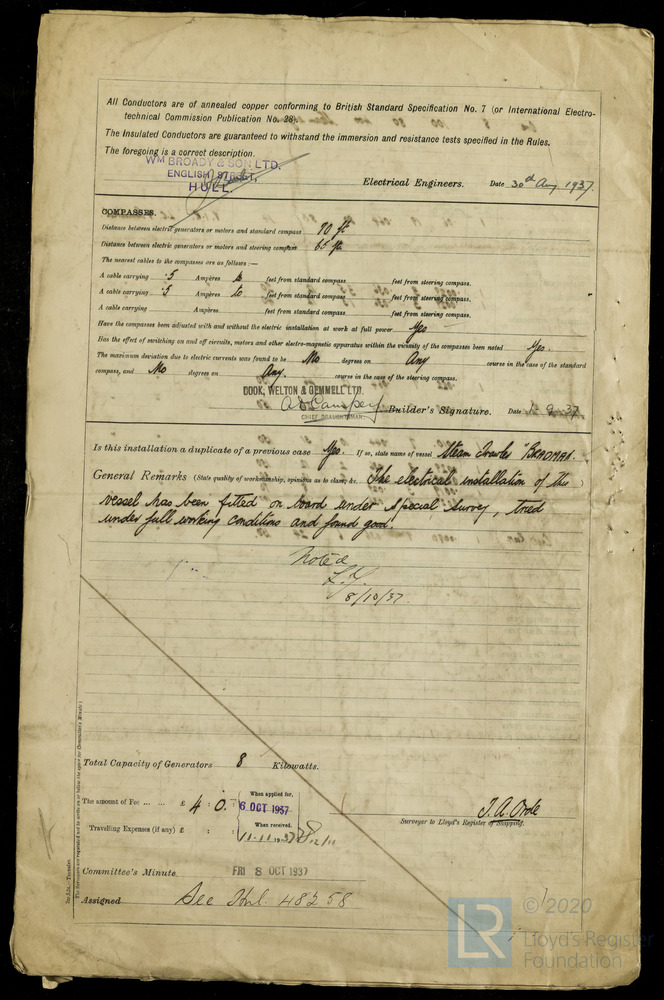 All Conductors are of annealed copper conforming to British Standard Specification No. 7 (or International Electro-
technical Commission Publication No. 28).
The Insulated Conductors are guaranteed to withstand the immersion and resistance tests specified in the Rules.
The foregoing is a correct description.
WM BROADY & SON LTD.
ENGLISH STREET,
HULL.
Electrical Engineers. Date 30th Aug 1937.
COMPASSES.
Distance between electric generators or motors and standard compass 70 ft
Distance between electric generators or motors and steering compass 65 ft
The nearest cables to the compasses are as follows:—
A cable carrying .5 Ampères to feet from standard compass feet from steering compass.
A cable carrying .5 Ampères to feet from standard compass feet from steering compass.
A cable carrying Ampères feet from standard compass feet from steering compass.
Have the compasses been adjusted with and without the electric installation at work at full power Yes
Has the effect of switching on and off circuits, motors and other electro-magnetic apparatus within the vicinity of the compasses been noted Yes.
The maximum deviation due to electric currents was found to be No degrees on Any course in the case of the standard
compass, and No degrees on Any. course in the case of the steering compass.
COOK, WELTON & GEMMELL LTD.
Builder's Signature. Date 1.9.37
CHIEF DRAUGHTSMAN
Is this installation a duplicate of a previous case Yes. If so, state name of vessel Steam Trawler "BRADMAN.
General Remarks (State quality of workmanship, opinions as to class, &c. The electrical installation of this )
vessel has been fitted on board under special survey, tried
under full working conditions and found good.
Noted
8/10/37
Total Capacity of Generators 8 Kilowatts.
The amount of Fee ... ... £ 4 : 0 : When applied for, 6 OCT 1937
Travelling Expenses (if any) £ : : When received, 11.11.1937 12/11
J. A. Orde
Surveyor to Lloyd's Register of Shipping.
Committee's Minute FRI 8 OCT 1937
Assigned See Hul. 48258
© 2020
LR Lloyd's Register
Foundation